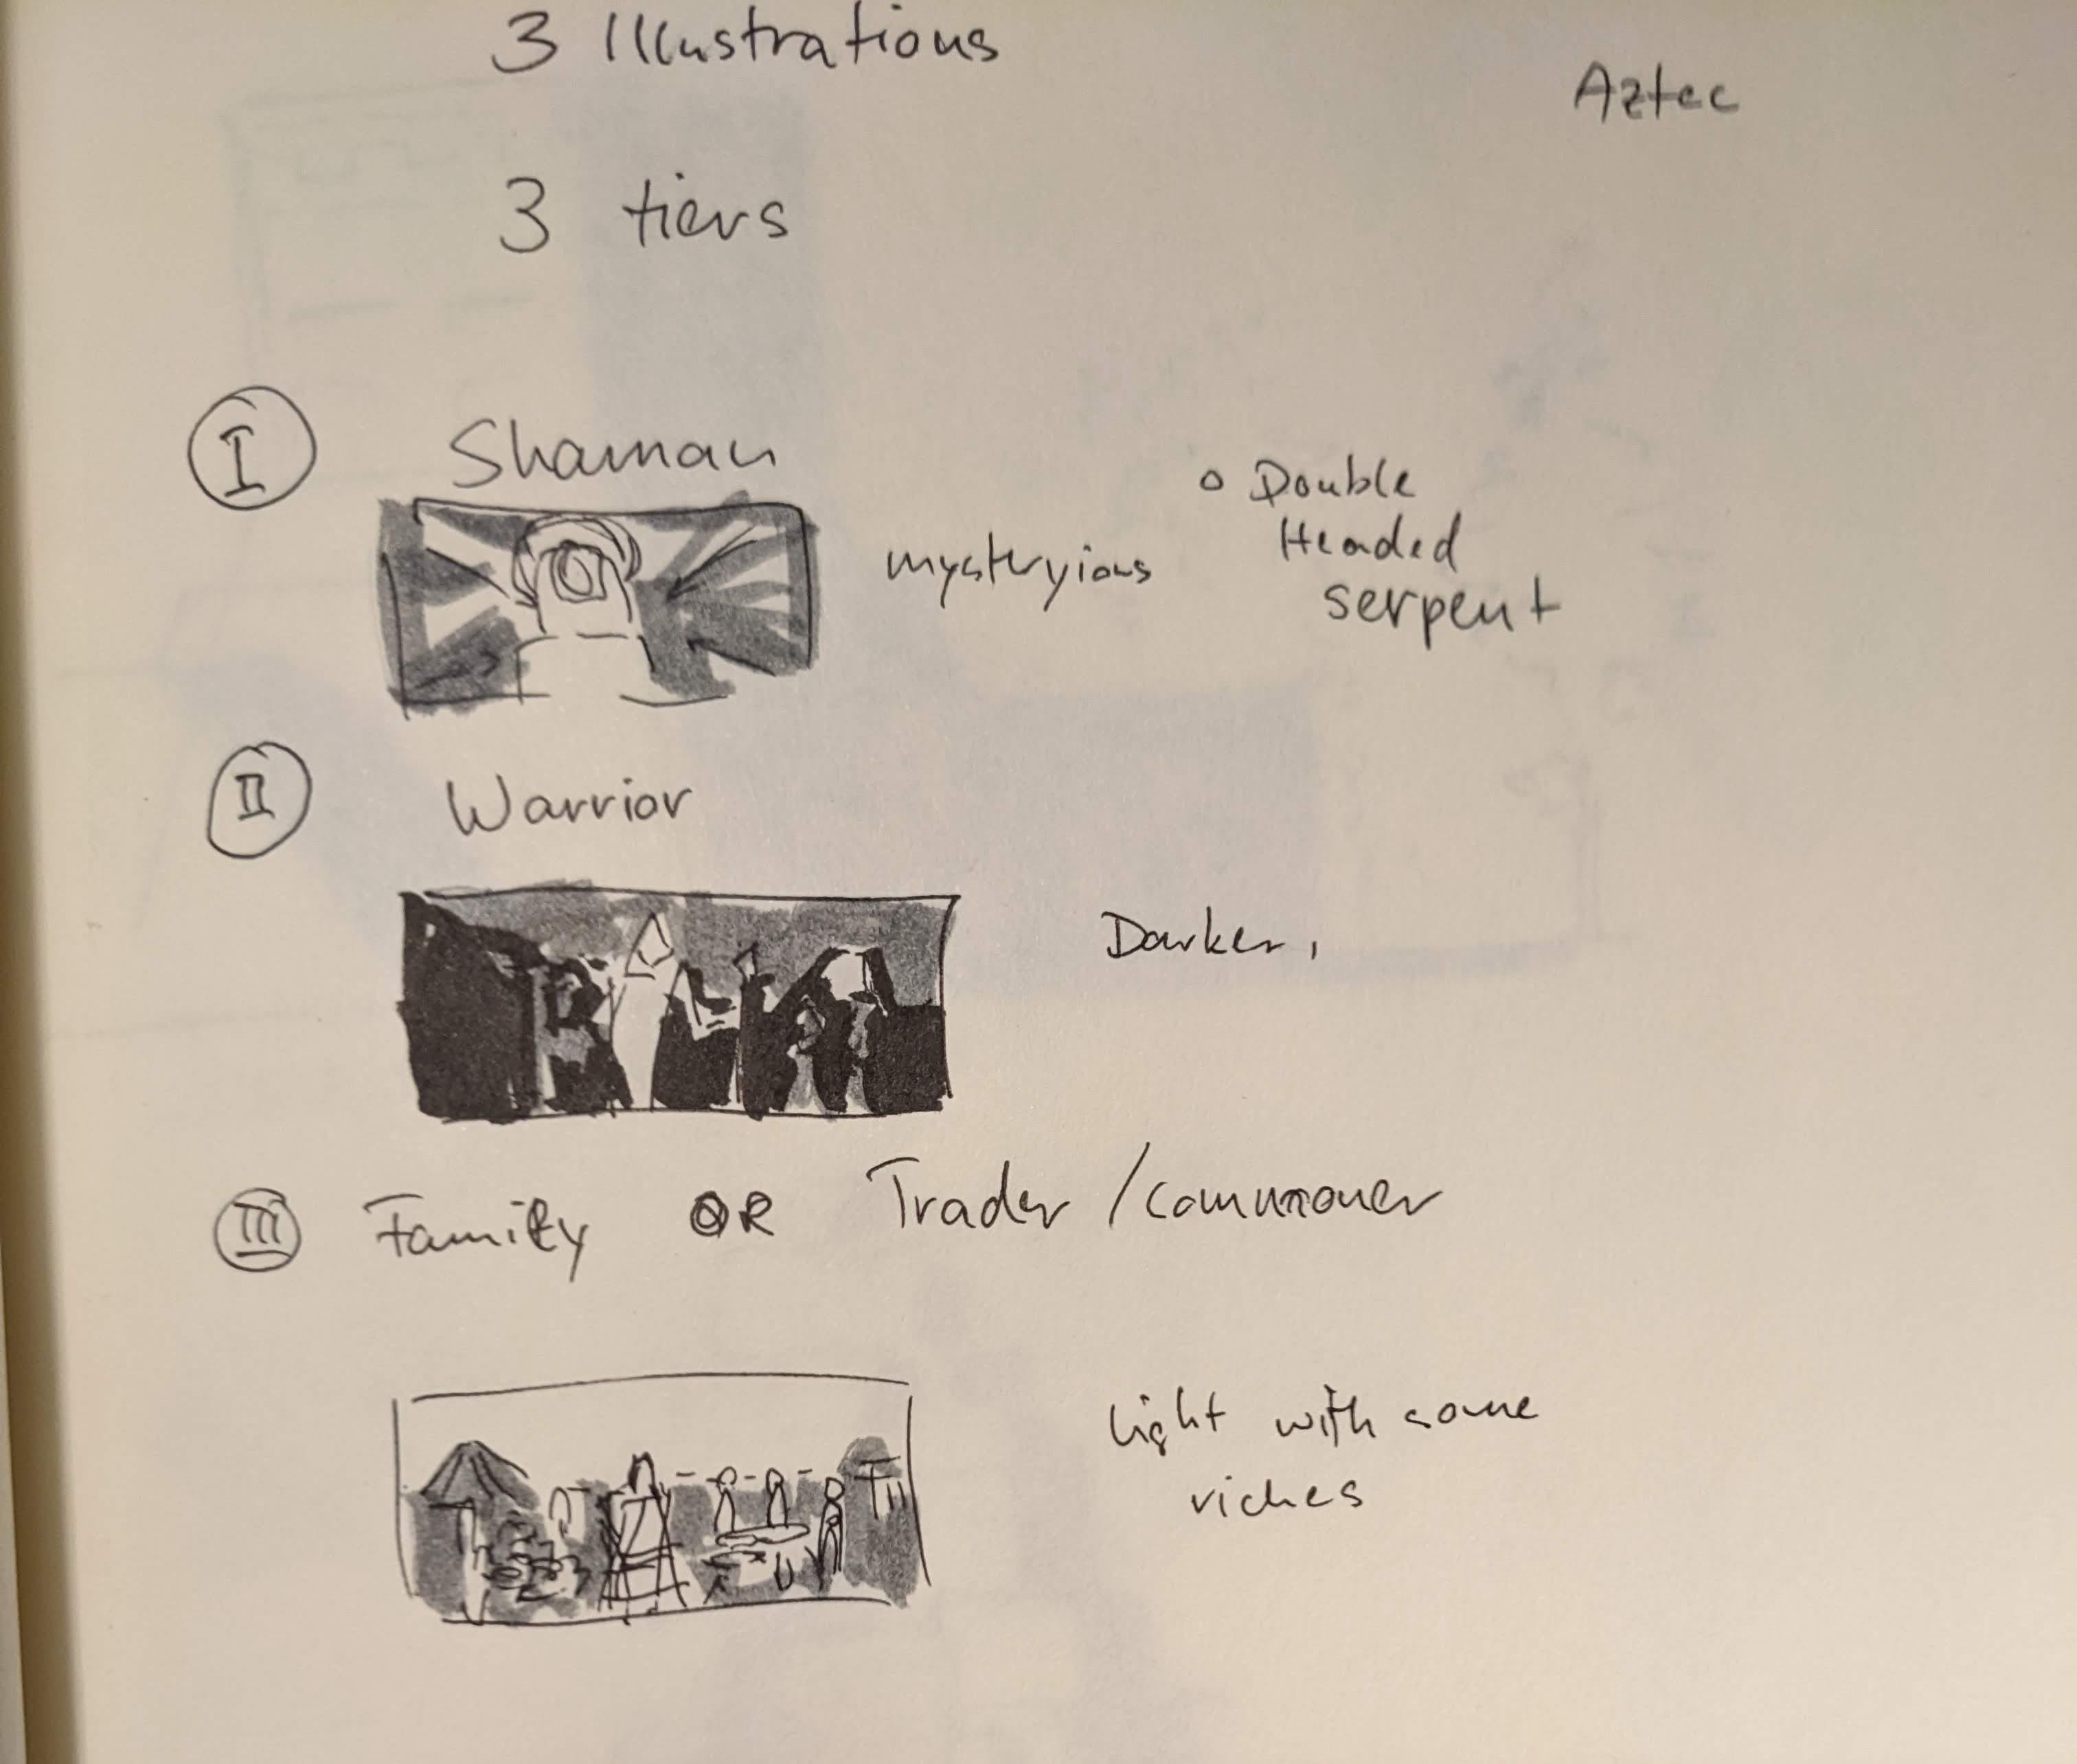 3 Illustrations
Aztec
3 tiers
I Shaman
mysteryious
o Double
Headed
serpent
II Warrior
Darker,
III Family OR Trader / commoner
light with some
riches